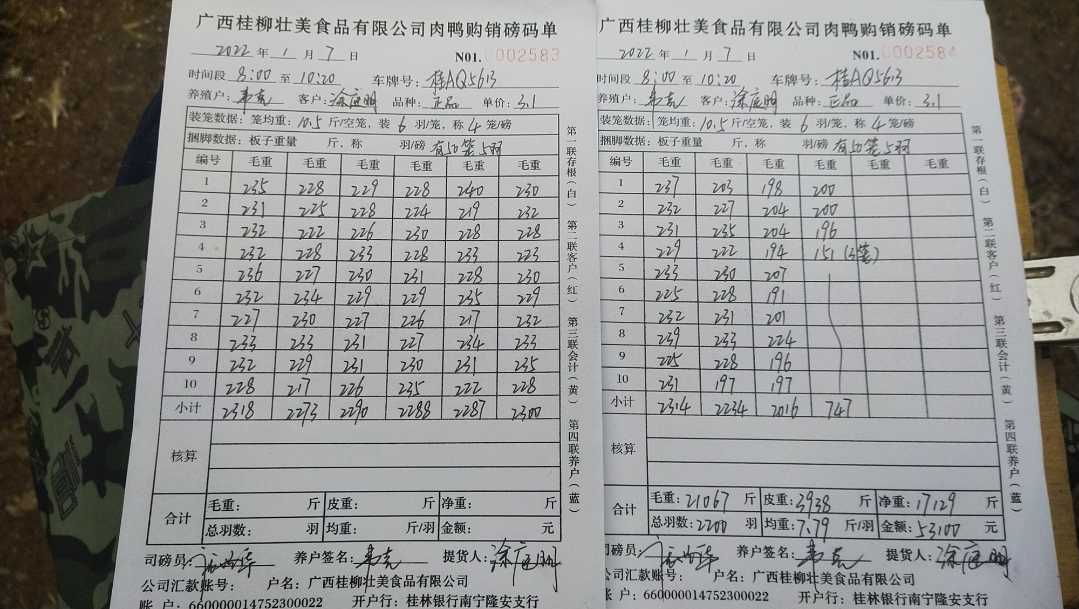 广西桂柳壮美食品有限公司肉鸭购销磅码单
2022 年 1 月 7 日 N01. 0002583
时间段 8:00 至 10:20 车牌号: 桂AQ5613
养殖户: 韦克 客户: 涂庭明 品种: 正品 单价: 3.1
装笼数据: 笼均重: 10.5 斤/空笼, 装 6 羽/笼, 称 4 笼/磅
捆脚数据: 板子重量 斤, 称 羽/磅 有50笼5羽
编号 毛重 毛重 毛重 毛重 毛重 毛重
1 235 228 229 228 240 230
2 231 225 228 224 219 232
3 232 222 226 230 228 228
4 232 228 233 228 233 223
5 236 227 230 231 228 230
6 232 234 229 229 235 229
7 227 230 227 226 217 232
8 233 233 231 227 234 233
9 232 229 231 230 231 235
10 228 217 226 235 222 228
小计 2318 2273 2290 2288 2287 2300
核算
合计 毛重: 斤 皮重: 斤 净重: 斤
总羽数: 羽 均重: 斤/羽 金额: 元
司磅员: 养户签名: 韦克 提货人: 涂庭明
公司汇款账号: 户名: 广西桂柳壮美食品有限公司
账 户: 660000014752300022 开户行: 桂林银行南宁隆安支行
第一联存根(白) 第二联客户(红) 第三联会计(黄) 第四联养户(蓝)
广西桂柳壮美食品有限公司肉鸭购销磅码单
2022 年 1 月 7 日 N01. 0002584
时间段 8:00 至 10:20 车牌号: 桂AQ5613
养殖户: 韦克 客户: 涂庭明 品种: 正品 单价: 3.1
装笼数据: 笼均重: 10.5 斤/空笼, 装 6 羽/笼, 称 4 笼/磅
捆脚数据: 板子重量 斤, 称 羽/磅 有50笼5羽
编号 毛重 毛重 毛重 毛重 毛重 毛重
1 237 203 198 200
2 232 227 204 200
3 231 235 204 196
4 229 222 194 151 (3笼)
5 233 230 207
6 225 228 191
7 232 231 201
8 239 233 224
9 225 228 196
10 231 197 197
小计 2314 2234 2016 747
核算
合计 毛重: 21067 斤 皮重: 3938 斤 净重: 17129 斤
总羽数: 2200 羽 均重: 7.79 斤/羽 金额: 53100 元
司磅员: 养户签名: 韦克 提货人: 涂庭明
公司汇款账号: 户名: 广西桂柳壮美食品有限公司
账 户: 660000014752300022 开户行: 桂林银行南宁隆安支行
第一联存根(白) 第二联客户(红) 第三联会计(黄) 第四联养户(蓝)